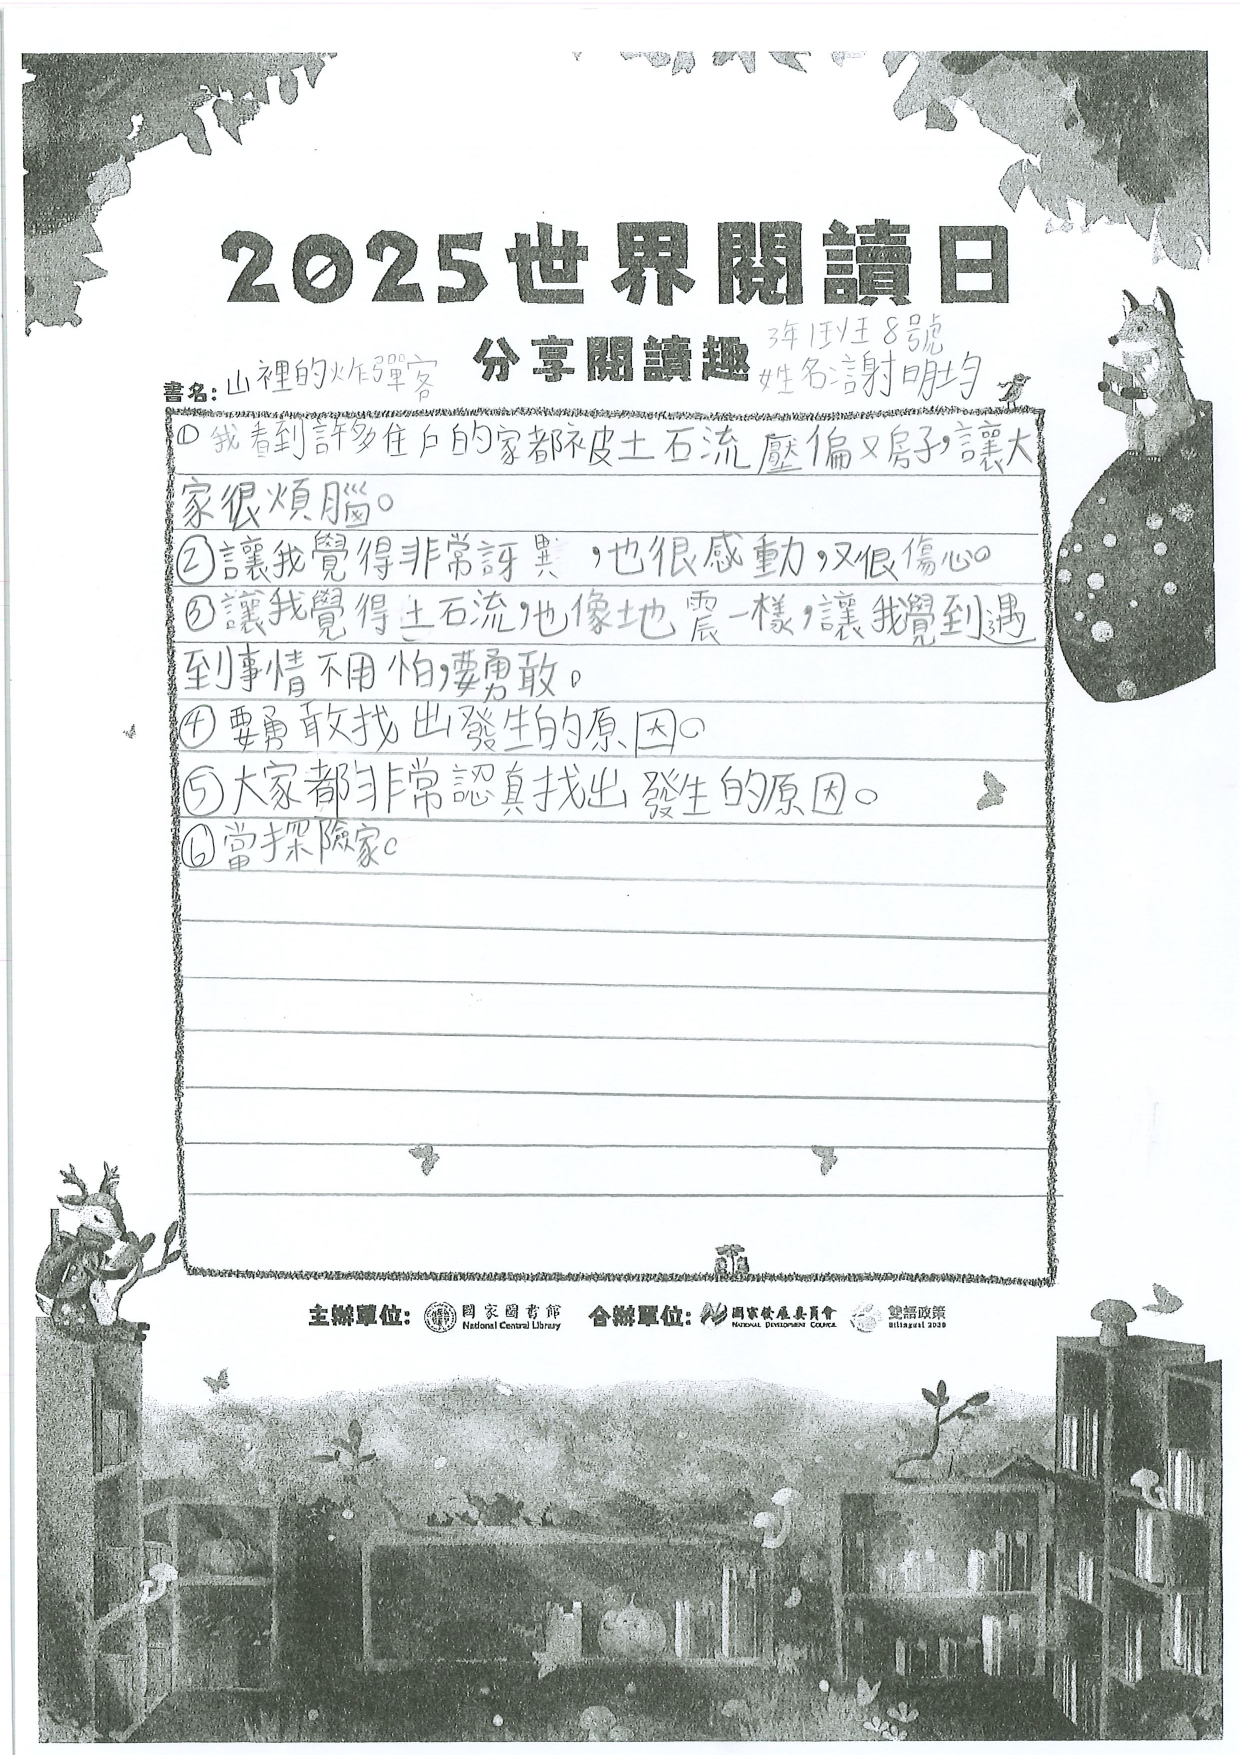 2025世界閱讀日
分享閱讀趣
3年1班 8號
書名:山裡的炸彈客
姓名:謝明均
①我看到許多住戶的家都被土石流壓偏ㄨ房子,讓大
家很煩腦。
②讓我覺得非常訝異,也很感動,又很傷心。
③讓我覺得土石流,也像地震一樣,讓我覺到遇
到事情不用怕,要勇敢。
④要勇敢找出發生的原因。
⑤大家都非常認真找出發生的原因。
⑥當探險家。
主辦單位: 國家圖書館 合辦單位: 國家發展委員會 雙語政策
National Central Library NATIONAL DEVELOPMENT COUNCIL Bilingual 2030